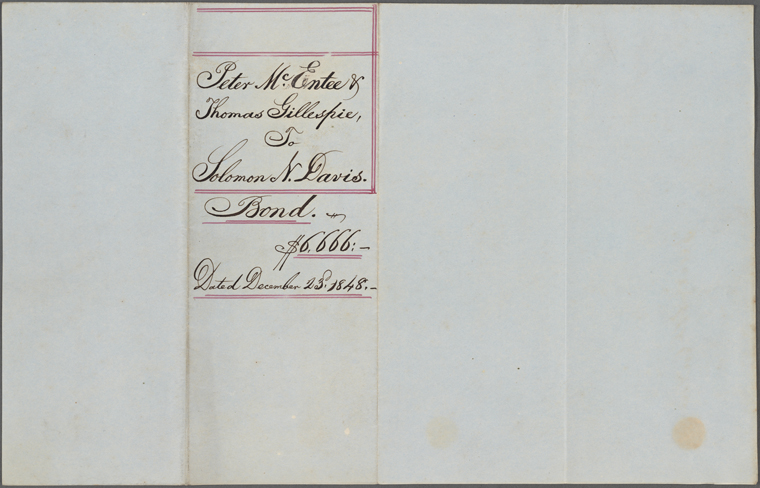 Peter McEntee &
Thomas Gillespie,
To
Solomon N. Davis.
Bond. ~
$6,666:-
Dated December 23d. 1848.-